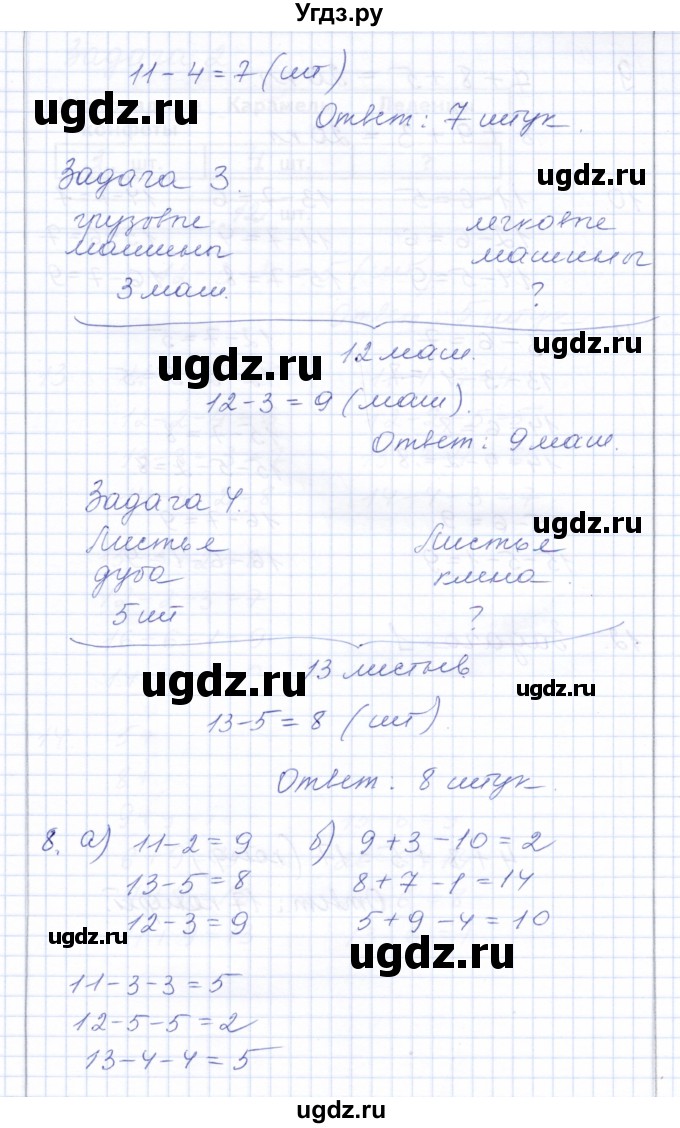 Угдз.ру
11-4=7 (шт)
ugdz.ru
Ответ: 7 штук.
ugdz.ru
Задача 3.
грузовые легковые
машины машины
3 маш. ?
ugdz.ru
12 маш.
ugdz.ru
12-3=9 (маш).
Ответ: 9 маш.
Задача 4.
ugdz.ru
Листья Листья
дуба клена
5 шт ?
13 листьев
ugdz.ru
ugdz.ru
13-5=8 (шт).
Ответ: 8 штук.
8. а) 11-2=9 б) 9+3-10=2
13-5=8 8+7-1=14
12-3=9 5+9-4=10
ugdz.ru
ugdz.ru
11-3-3=5
12-5-5=2
13-4-4=5
ugdz.ru